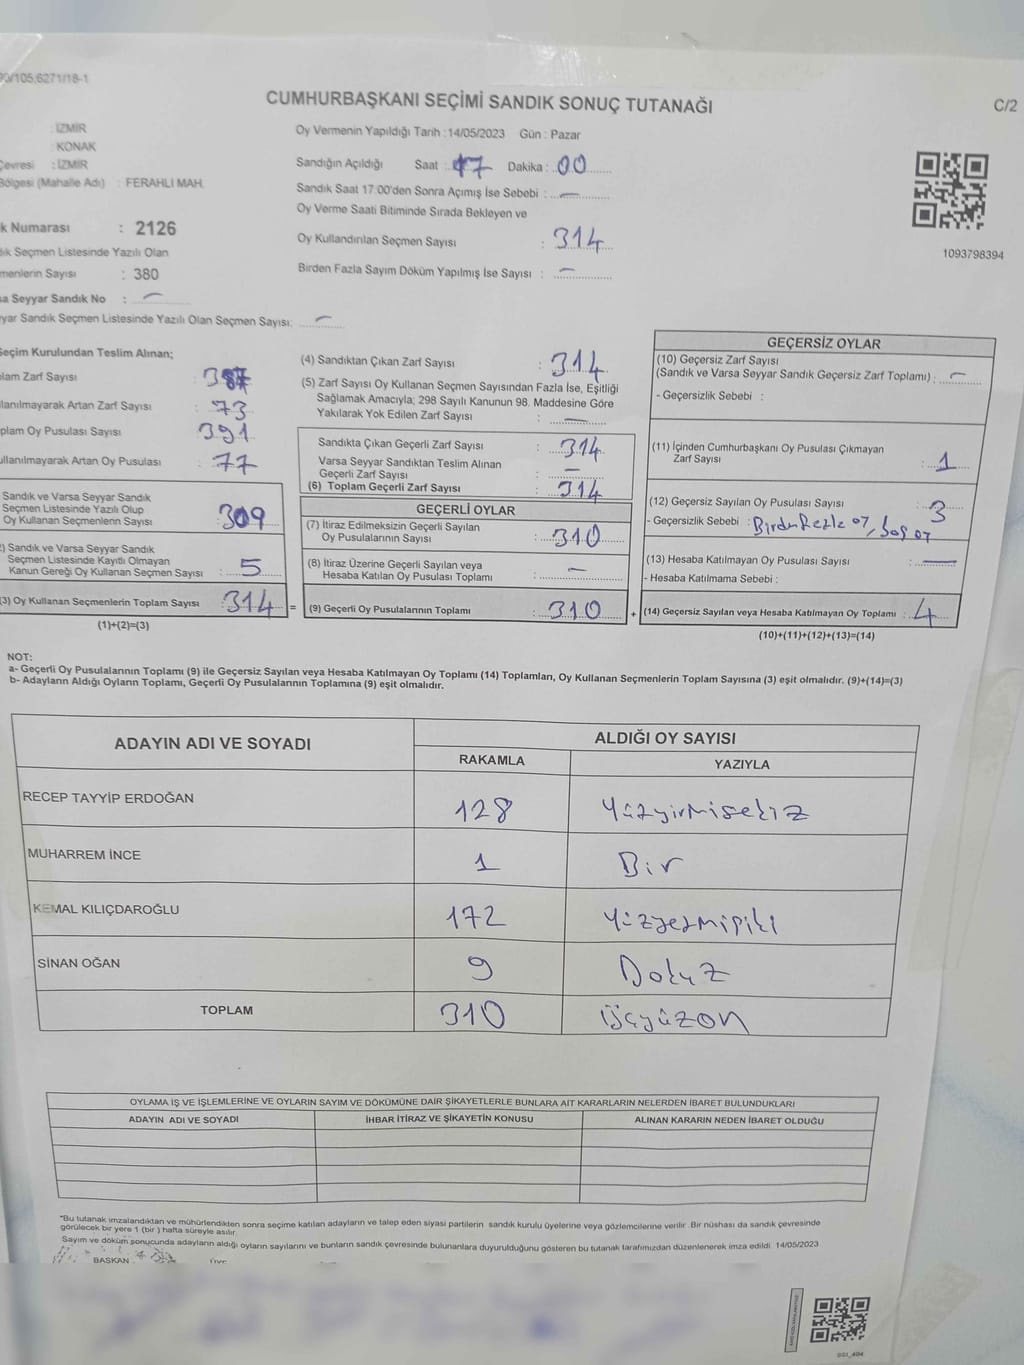 90/105,6271/18-1
C/2
CUMHURBAŞKANI SEÇİMİ SANDIK SONUÇ TUTANAĞI
: İZMİR
: KONAK
Çevresi : İZMİR
Bölgesi (Mahalle Adı) : FERAHLI MAH.
k Numarası : 2126
ık Seçmen Listesinde Yazılı Olan
menlerin Sayısı : 380
sa Seyyar Sandık No : —
yar Sandık Seçmen Listesinde Yazılı Olan Seçmen Sayısı: —
Oy Vermenin Yapıldığı Tarih :14/05/2023 Gün : Pazar
Sandığın Açıldığı Saat : 17 Dakika : 00
Sandık Saat 17:00'den Sonra Açımış İse Sebebi : —
Oy Verme Saati Bitiminde Sırada Bekleyen ve
Oy Kullandırılan Seçmen Sayısı : 314
Birden Fazla Sayım Döküm Yapılmış İse Sayısı : —
1093798394
Seçim Kurulundan Teslim Alınan;
lam Zarf Sayısı : 387
lanılmayarak Artan Zarf Sayısı : 73
plam Oy Pusulası Sayısı : 391
ullanılmayarak Artan Oy Pusulası : 77
Sandık ve Varsa Seyyar Sandık
Seçmen Listesinde Yazılı Olup
Oy Kullanan Seçmenlerin Sayısı : 309
) Sandık ve Varsa Seyyar Sandık
Seçmen Listesinde Kayıtlı Olmayan
Kanun Gereği Oy Kullanan Seçmen Sayısı : 5
(3) Oy Kullanan Seçmenlerin Toplam Sayısı : 314 =
(1)+(2)=(3)
(4) Sandıktan Çıkan Zarf Sayısı : 314
(5) Zarf Sayısı Oy Kullanan Seçmen Sayısından Fazla İse, Eşitliği
Sağlamak Amacıyla; 298 Sayılı Kanunun 98. Maddesine Göre
Yakılarak Yok Edilen Zarf Sayısı : —
Sandıkta Çıkan Geçerli Zarf Sayısı : 314
Varsa Seyyar Sandıktan Teslim Alınan
Geçerli Zarf Sayısı : —
(6) Toplam Geçerli Zarf Sayısı : 314
GEÇERLİ OYLAR
(7) İtiraz Edilmeksizin Geçerli Sayılan
Oy Pusulalarının Sayısı : 310
(8) İtiraz Üzerine Geçerli Sayılan veya
Hesaba Katılan Oy Pusulası Toplamı : —
(9) Geçerli Oy Pusulalarının Toplamı : 310 +
GEÇERSİZ OYLAR
(10) Geçersiz Zarf Sayısı
(Sandık ve Varsa Seyyar Sandık Geçersiz Zarf Toplamı) : —
- Geçersizlik Sebebi :
(11) İçinden Cumhurbaşkanı Oy Pusulası Çıkmayan
Zarf Sayısı : 1
(12) Geçersiz Sayılan Oy Pusulası Sayısı : 3
- Geçersizlik Sebebi : Birden Fazla oy, Boş oy
(13) Hesaba Katılmayan Oy Pusulası Sayısı : —
- Hesaba Katılmama Sebebi :
(14) Geçersiz Sayılan veya Hesaba Katılmayan Oy Toplamı : 4
(10)+(11)+(12)+(13)=(14)
NOT:
a- Geçerli Oy Pusulalarının Toplamı (9) ile Geçersiz Sayılan veya Hesaba Katılmayan Oy Toplamı (14) Toplamları, Oy Kullanan Seçmenlerin Toplam Sayısına (3) eşit olmalıdır. (9)+(14)=(3)
b- Adayların Aldığı Oyların Toplamı, Geçerli Oy Pusulalarının Toplamına (9) eşit olmalıdır.
ADAYIN ADI VE SOYADI ALDIĞI OY SAYISI
RAKAMLA YAZIYLA
RECEP TAYYİP ERDOĞAN 128 Yüzyirmisekiz
MUHARREM İNCE 1 Bir
KEMAL KILIÇDAROĞLU 172 Yüzyetmişiki
SİNAN OĞAN 9 Dokuz
TOPLAM 310 üçyüzon
OYLAMA İŞ VE İŞLEMLERİNE VE OYLARIN SAYIM VE DÖKÜMÜNE DAİR ŞİKAYETLERLE BUNLARA AİT KARARLARIN NELERDEN İBARET BULUNDUKLARI
ADAYIN ADI VE SOYADI İHBAR İTİRAZ VE ŞİKAYETİN KONUSU ALINAN KARARIN NEDEN İBARET OLDUĞU
"Bu tutanak imzalandıktan ve mühürlendikten sonra seçime katılan adayların ve talep eden siyasi partilerin sandık kurulu üyelerine veya gözlemcilerine verilir. Bir nüshası da sandık çevresinde
görülecek bir yere 1 (bir) hafta süreyle asılır.
Sayım ve döküm sonucunda adayların aldığı oyların sayılarını ve bunların sandık çevresinde bulunanlara duyurulduğunu gösteren bu tutanak tarafımızdan düzenlenerek imza edildi. 14/05/2023
BAŞKAN